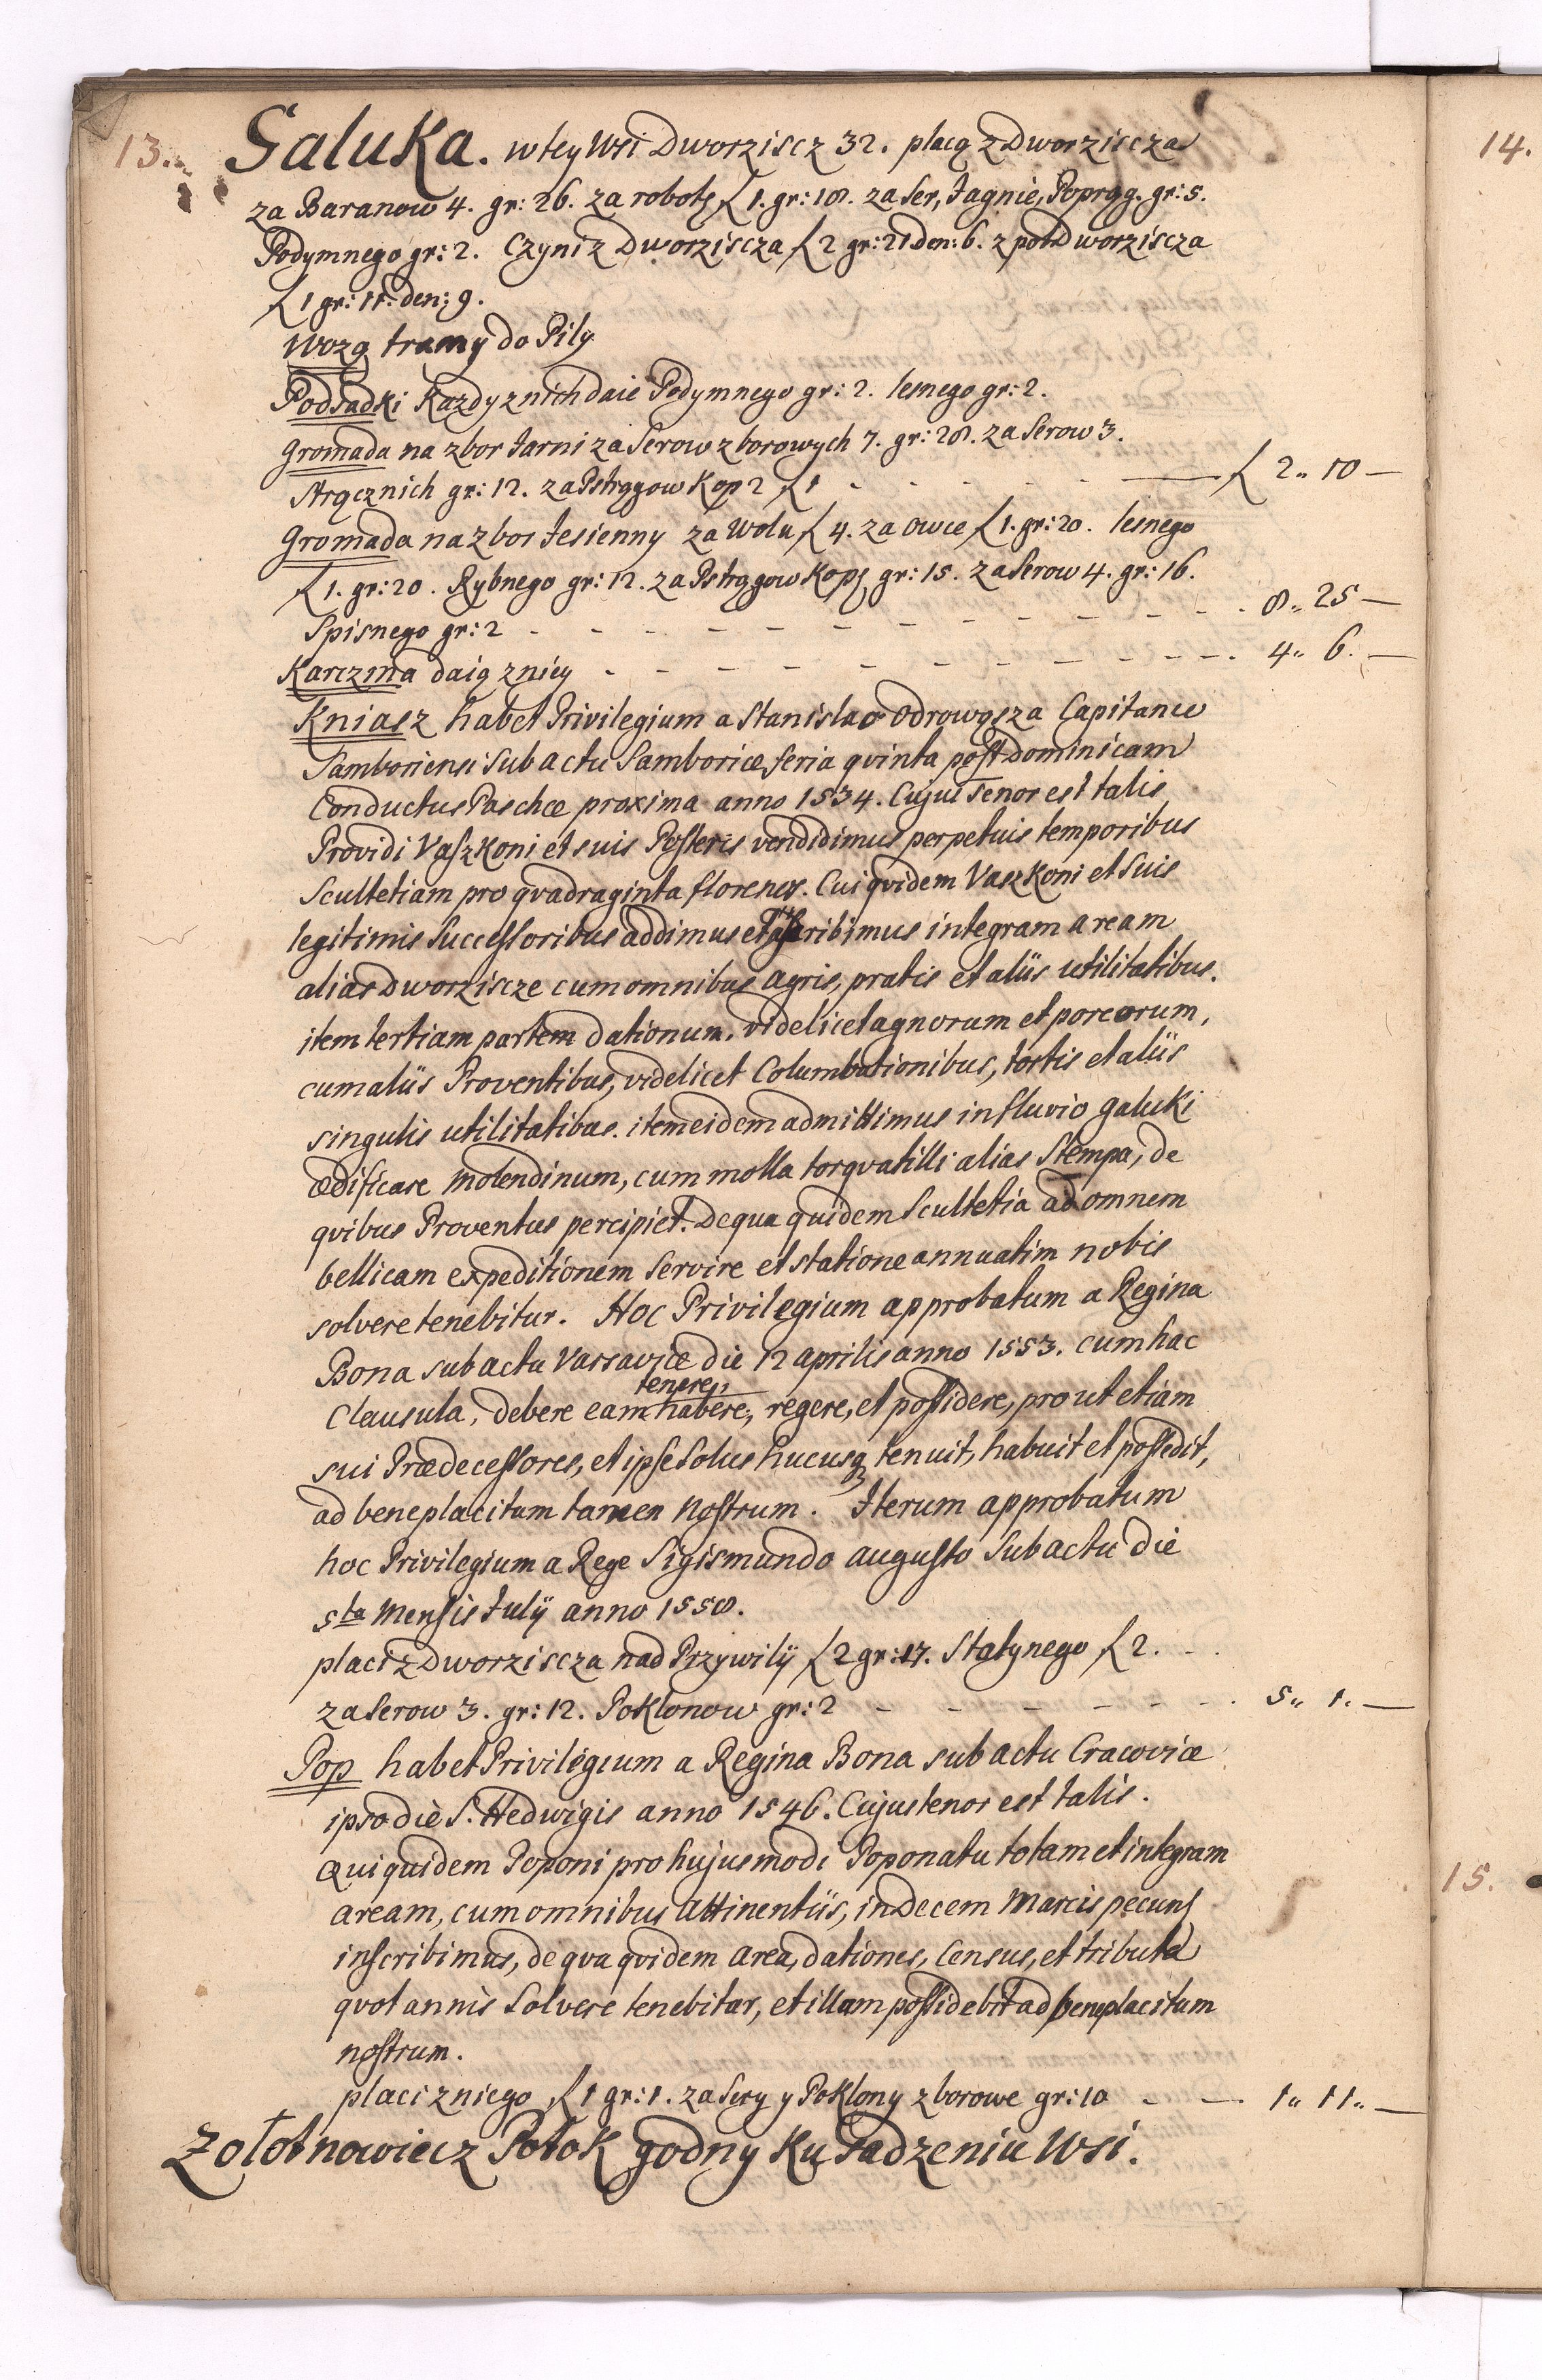 13. Galuka. w tey Wsi Dworziscz 32. placą z Dworziscza
za Baranow 4. gr: 26. za robotę ƒ 1. gr: 18. za Ser, Jagnie, Poprąg. gr: 5.
Podymnego gr: 2. Czyni z Dworziscza ƒ 2 gr: 21 den: 6. z poł Dworziscza
ƒ 1 gr: 11. den: 9.
Wozą tramy do Piły
Podsadki Kazdy z nich daie Podymnego gr: 2. lesnego gr: 2.
Gromada na zbor Jarni za Serow zborowych 7. gr: 28. za Serow 3.
Strącznich gr: 12. za Pstrągow Kop 2 ƒ 1 - - - - - ƒ 2 „ 10 —
Gromada na zbor Jesienny za Wołu ƒ 4. za owce ƒ 1. gr: 20. lesnego
ƒ 1. gr: 20. Rybnego gr: 12. za Pstrągow Kopę gr: 15. za Serow 4. gr: 16.
Spisnego gr: 2 - - - - - - - - - - 8 „ 25 —
Karczma daią z niey - - - - - - - - - - 4 „ 6. —
Kniasz habet Privilegium a Stanislao Odrowąsza Capitaneo
Samboriensi sub actu Samboriæ feria qvinta post Dominicam
Conductus Paschæ proxima anno 1534. Cujus Tenor est talis
Providi Vaszkoni et suis Posteris vendidimus perpetuis temporibus
Scultetiam pro qvadraginta florenos. Cui qvidem Vaszkoni et suis
legitimis Successoribus addimus et ascribimus integram aream
alias Dworziscze cum omnibus agris, pratis et aliis utilitatibus.
item tertiam partem dationum, videlicet agnorum et porcorum,
cum aliis Proventibus, videlicet Columbationibus, tortis et aliis
singulis utilitatibus. item eidem admittimus in fluvio Galuki
ædificare molendinum, cum molla torqvatilli alias Stempa, de
qvibus Proventus percipiet. De qua quidem Scultetia ad omnem
bellicam expeditionem servire et statione annuatim nobis
solvere tenebitur. Hoc Privilegium approbatum a Regina
Bona sub actu Varsaviæ die 12 aprilis anno 1553. cum hac
tenere,
Clausula, debere eam habere, regere, et possidere, prout etiam
sui Prædecessores, et ipse solus hucusq tenuit, habuit et possedit,
ad beneplacitum tamen nostrum. Iterum approbatum
hoc Privilegium a Rege Sigismundo Augusto sub actu die
5ta Mensis Julij anno 1558.
placi z Dworziscza nad Przywilij ƒ 2 gr: 17. Statynego ƒ 2. - .
za Serow 3. gr: 12. Poklonow gr: 2 - - - - - - 5 „ 1. —
Pop habet Privilegium a Regina Bona sub actu Cracoviæ
ipso die S. Hedwigis anno 1546. Cujus tenor est talis.
Qui quidem Poponi pro hujusmodi Poponatu totam et integram
aream, cum omnibus attinentiis, in decem Marcis pecunę
inscribimus, de qva qvidem area, dationes, Census, et tributa
qvotannis solvere tenebitur, et illam possidebit ad beneplacitum
nostrum.
placi z niego ƒ 1 gr: 1. za Sery y Poklony zborowe gr: 10 - — 1 „ 11 „ —
Zołotnowiecz Potok godny Ku sadzeniu Wsi.
14.
15.